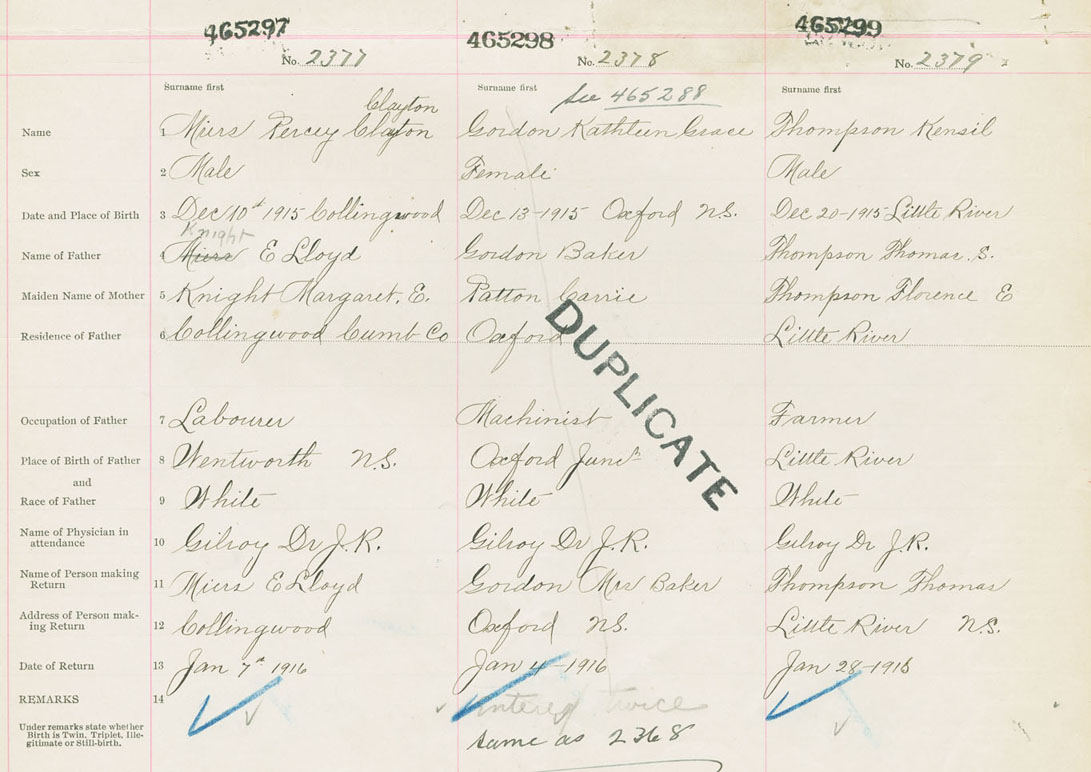 465297 465298 465299
No. 2377 No. 2378 No. 2379
Surname first Surname first Surname first
See 465288
Clayton
Name 1 Miers Percey Clayton Gordon Kathleen Grace Thompson Kensil
Sex 2 Male Female Male
Date and Place of Birth 3 Dec 10th 1915 Collingwood Dec 13-1915 Oxford N.S. Dec 20-1915 Little River
Knight
Name of Father 4 Miers E Lloyd Gordon Baker Thompson Thomas. S.
Maiden Name of Mother 5 Knight Margaret. E. Patton Carrie Thompson Florence E
Residence of Father 6 Collingwood Cumb Co Oxford Little River
DUPLICATE
Occupation of Father 7 Labourer Machinist Farmer
Place of Birth of Father 8 Wentworth N.S. Oxford Junc Little River
and
Race of Father 9 White White White
Name of Physician in
attendance 10 Gilroy Dr J.R. Gilroy Dr J.R. Gilroy Dr J.R.
Name of Person making
Return 11 Miers E Lloyd Gordon Mrs Baker Thompson Thomas
Address of Person mak-
ing Return 12 Collingwood Oxford N.S. Little River N.S.
Date of Return 13 Jan 7th 1916 Jan 4-1916 Jan 28-1916
REMARKS 14 entered twice
Under remarks state whether
Birth is Twin, Triplet, Ille-
gitimate or Still-birth.
same as 2368